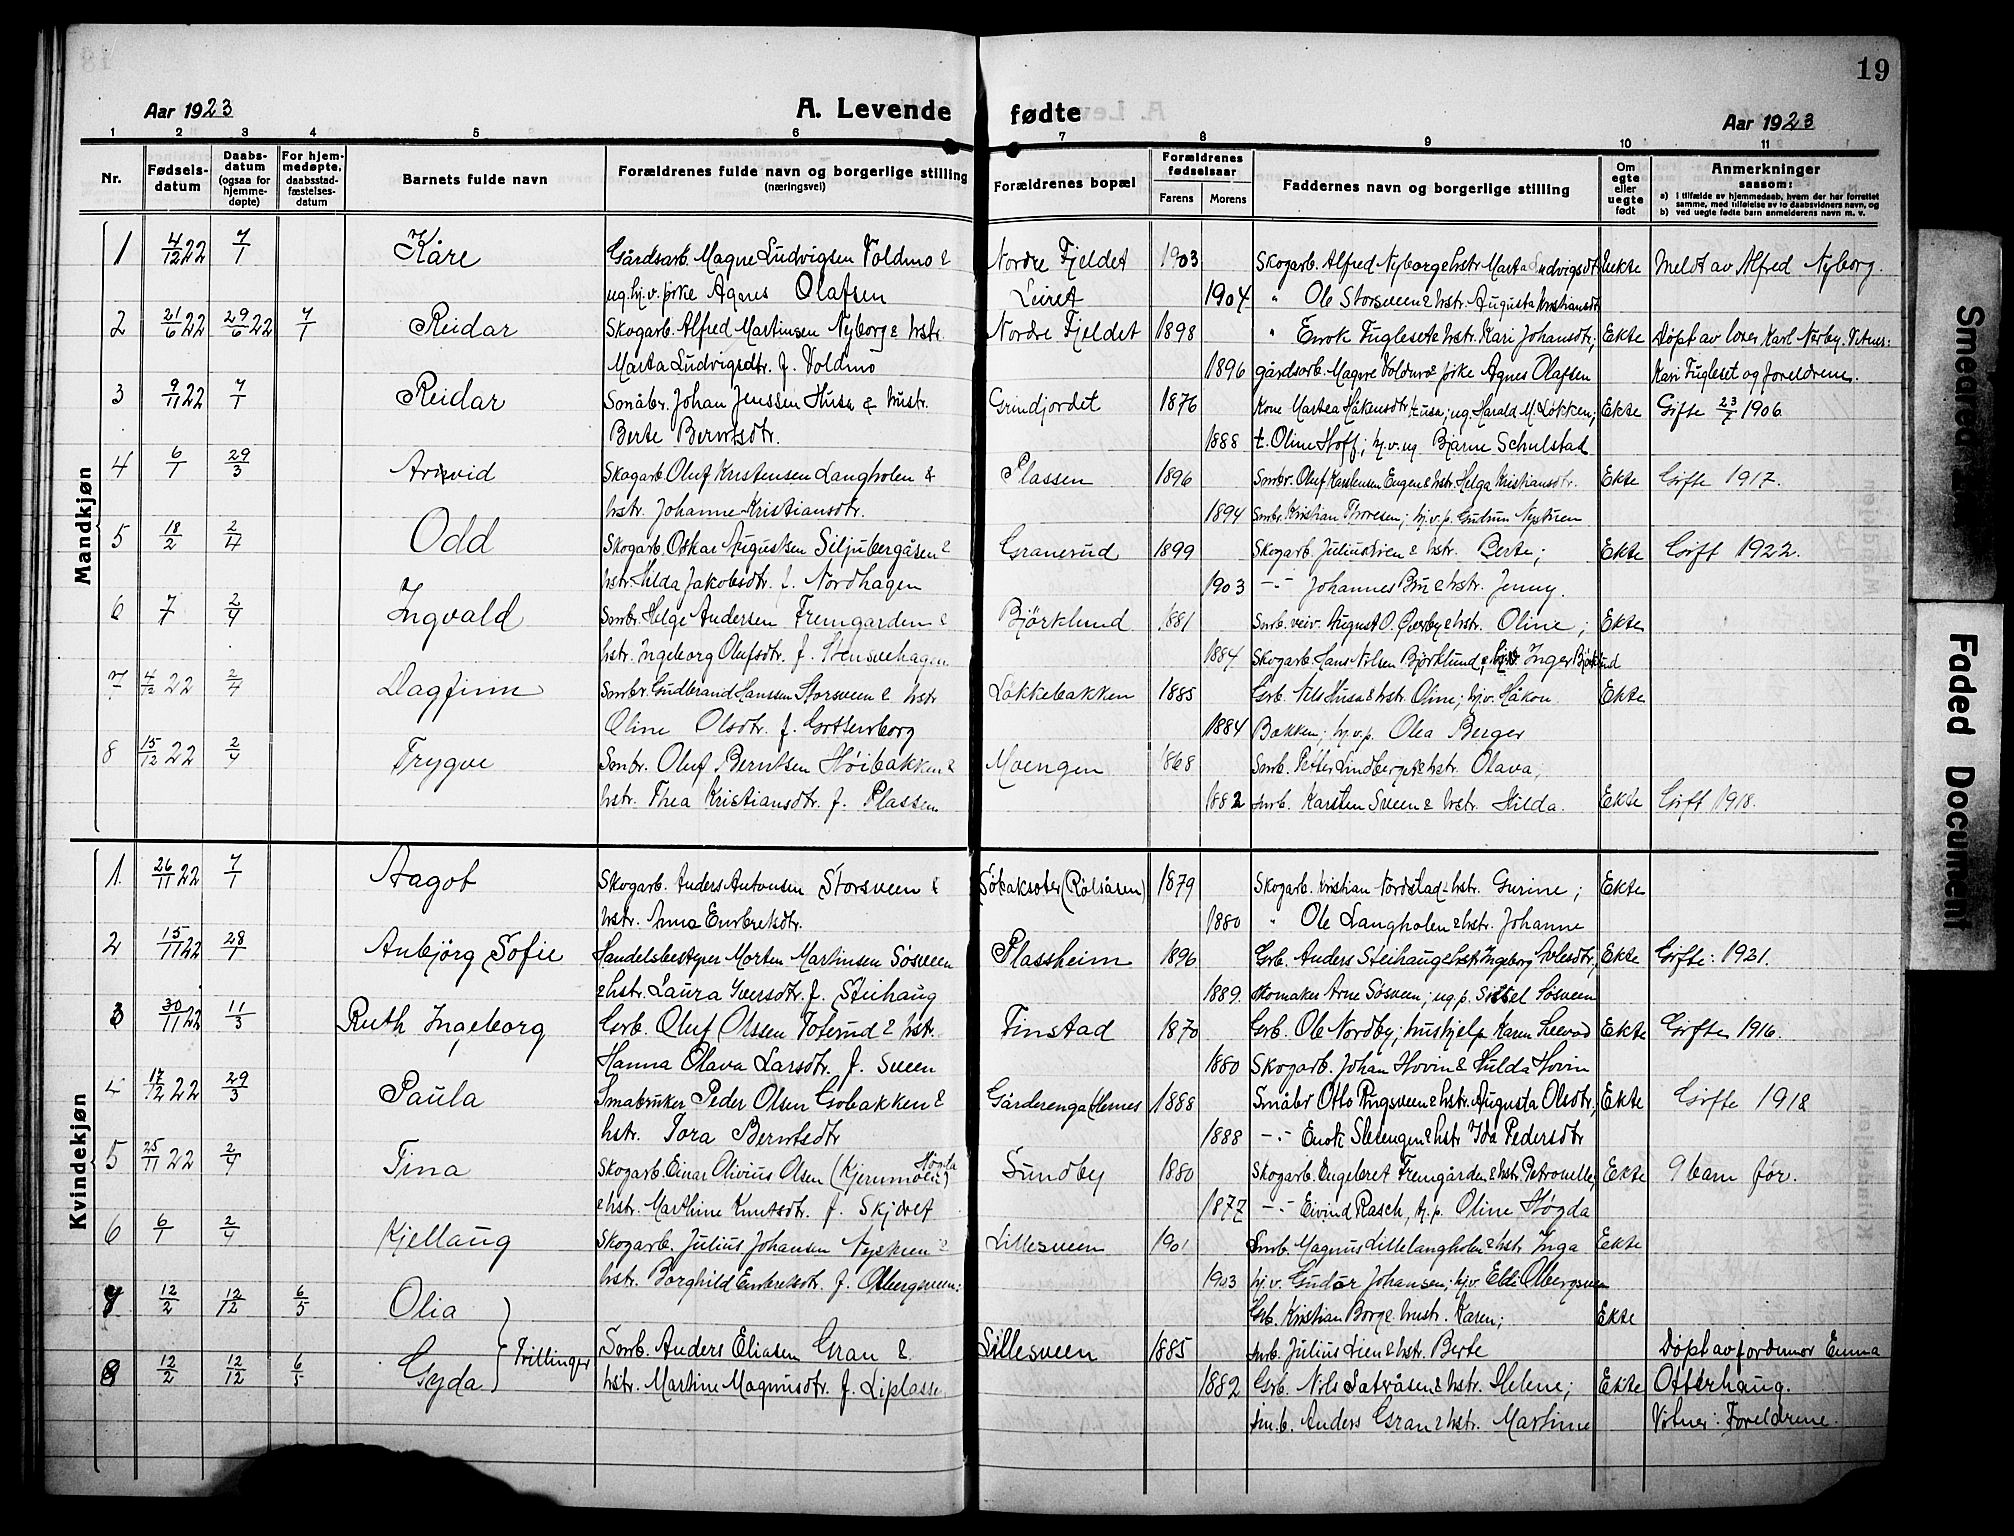 19
Aar 1923
A. Levende fødte
Aar 1923
1 2 3 4 5 6 7 8 9 10 11
Nr.
Fødsels-datum
Daabs-datum (ogsaa for hjemme-døpte)
For hjem-medøpte, daabsstad-fæstelses-datum
Barnets fulde navn
Forældrenes fulde navn og borgerlige stilling (næringsvei)
Forældrenes bopæl
Forældrenes fødselsaar
Farens Morens
Faddernes navn og borgerlige stilling
Om egte eller uegte født
Anmerkninger saasom:
a) i tilfælde av hjemmedaab, hvem der har forrettet samme, med tilføielse av to daabsvidners navn, og
b) ved uegte fødte barn anmelderens navn m. v.
Mandkjøn
1 4/12 22 7/1 Kåre Gårdsarb. Magne Ludvigsen Voldmo & Nordre Fjeldet 1903 Skogarb. Alfred Nyborg & hstr. Marta Ludvigsdt. Uekte Meldt av Alfred Nyborg.
ug. hj.v. pike Agnes Olafsen Leiret 1904 " Ole Storsveen & hstr. Augusta Kristiansdt.
2 21/6 22 29/6 22 7/1 Reidar Skogarb. Alfred Martinsen Nyborg & hstr. Nordre Fjeldet 1898 " Enok Fugleset & hstr. Kari Johansdtr; Ekte Døpt av lærer Karl Nerby. Vitner:
Marta Ludvigsdtr. f. Voldmo 1896 gårdsarb. Magne Voldmo & pike Agnes Olafsen Kari Fugleset og foreldrene.
3 9/11 22 7/1 Reidar Småbr. Johan Jenssen Husa & hustr. Grindjordet 1876 Kone Martea Håkensdtr. Husa; ug. Harald M. Løkken; Ekte Gifte 23/7 1906
Berte Berntsdtr. 1888 t. Oline Hoff; hj.v. ug Bjarne Schulstad
4 6/1 29/3 Arvid Skogarb. Oluf Kristensen Langholen & Plassen 1896 Smbr. Oluf Karstensen Engen & hstr. Helga Kristiansdtr. Ekte Gifte 1917.
hstr. Johanne Kristiansdtr. 1894 Smbr. Kristian Thoresen; hj.v.p. Gudrun Nystuen
5 18/2 2/4 Odd Skogarb. Oskar Augustsen Siljubergåsen & Granerud 1899 Skogarb. Julius Lien & hstr. Berte; Ekte Gift 1922.
hstr. Hilda Jakobsdtr. f. Nordhagen 1903 -"- Johannes Bru & hstr. Jenny.
6 7/1 2/4 Ingvald Smbr. Helge Andersen Fremgarden & Bjørklund 1881 Smb. veiv. August O. Øverby & hstr. Oline; Ekte
hstr. Ingeborg Olufsdtr. f. Stensvehagen 1884 Skogarb. Hans Nilsen Bjørklund; hj.v. Inger Bjørklund
7 4/12 22 2/4 Dagfinn Smbr. Gudbrand Hanssen Storsveen & hstr Løkkebakken 1885 Grb. Nils Husa & hstr. Oline; hj.v. Håkon Ekte
Oline Olsdtr. f. Gottenborg 1884 Bakken; hj.v.p. Olea Berger
8 15/12 22 2/4 Trygve Smbr. Oluf Berntsen Høibakken & Moengen 1868 Smb. Petter Lindberget & hstr. Olava;
hstr. Thea Kristiansdtr. f. Plassen 1882 smb. Karsten Sveen & hstr. Hilda. Ekte Gift 1918.
Kvindekjøn
1 26/11 22 7/1 Aagot Skogarb. Anders Antonsen Storsveen & Søbaksæter (Rølsåsen) 1879 Skogarb. Kristian Nordstad & hstr. Gurine; Ekte
hstr. Anna Embretsdtr. 1880 " Ole Langholen & hstr. Johanne
2 15/11 22 28/1 Anbjørg Sofie Handelsbestyrer Morten Martinsen Søsveen Plassheim 1896 Grb. Anders Steihaug & hstr. Ingeborg Arlesdtr; Ekte Gifte: 1921.
& hstr. Laura Iversdtr. f. Steihaug 1889 Skomaker Arne Søsveen; ug.p. Sissel Søsveen
3 30/11 22 11/3 Ruth Ingeborg Grb. Oluf Olssen Toserud & hstr. Finstad 1870 Grb. Ole Nordby; hushjelp Karen Ekte Gifte 1916.
Hanna Olava Larsdtr. f. Sveen 1880 Skogarb. Johan Hovin & Hulda Hovin
4 17/12 22 29/3 Paula Småbruker Peder Olsen Gobakken & Gårderenga Hernes 1888 Småbr Otto Ringsveen & hstr. Augusta Olsdtr; Ekte Gifte 1918
hstr. Tora Berntsdtr 1888 -"- Enok Slesengen & hstr Ida Pedersdtr
5 25/11 22 2/4 Tina Skogarb. Einar Olivius Olsen (Kjernmoen) Høgda Sundby 1880 Skogarb. Engebret Fremgården & hstr. Petronelle; Ekte 9 barn før.
& hstr. Marthine Knutsdtr. f. Skjæret 1877 -"- Eivind Rasch, hj.p. Oline Høgda
6 6/1 2/4 Kjellaug Skogarb. Julius Johansen Nystuen & Lillesveen 1901 Smb. Magnus Lillelangholen & hstr Inga Ekte
hstr. Borghild Embretsdtr. f. Olbergsveen: 1903 hj.v. Gudor Johansen; hj.v. Olbergsveen
7 12/2 12/12 6/5 Olia Grb. Kristian Borg & hustr. Karen; Ekte
Tvillinger Smb. Anders Eliasen Gran & Lillesveen 1885 smb. Julius Lien & hstr. Berte Døpt av jordmor Emma
8 12/2 12/12 6/5 Gyda hstr. Martine Magnusdtr. f. Liplassen 1882 Grb. Nils Sætråsen & hstr. Helene; Ekte Otterhaug.
sm.b. Anders Gran & hstr. Martine Vitner: Foreldrene.
Smearedest
Faded Document